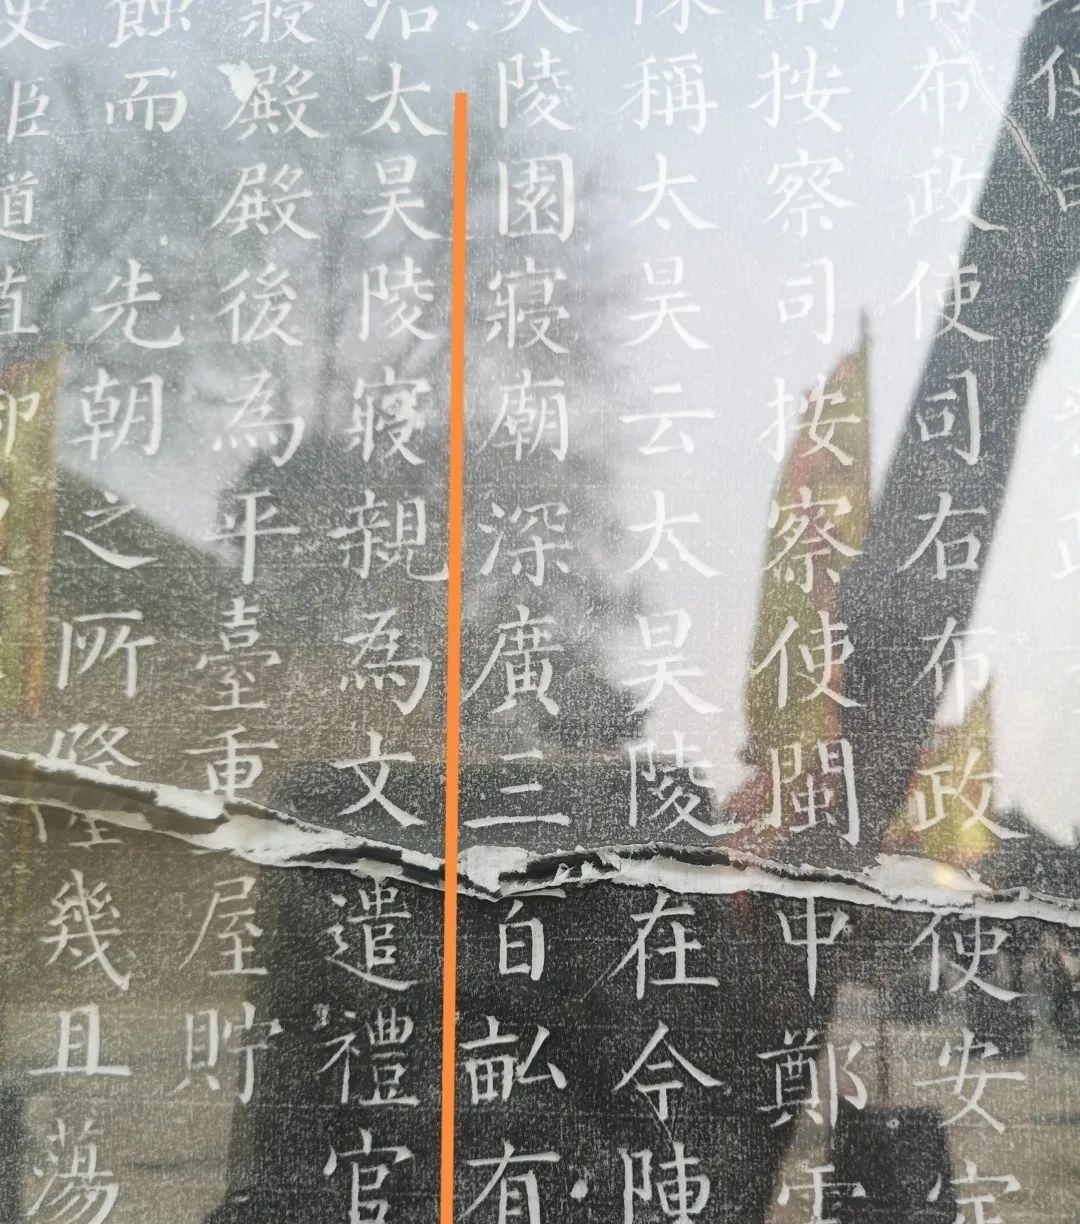 使司
南布政使司右布政使安定
南按察司按察使閩中鄭雲
稱太昊云太昊陵在今陳
陵園寢廟深廣三百畝有
太昊陵寢親為文遣禮官
寢殿殿後為平臺重屋貯
蝕而 先朝之所隆幾且蕩
臣道直